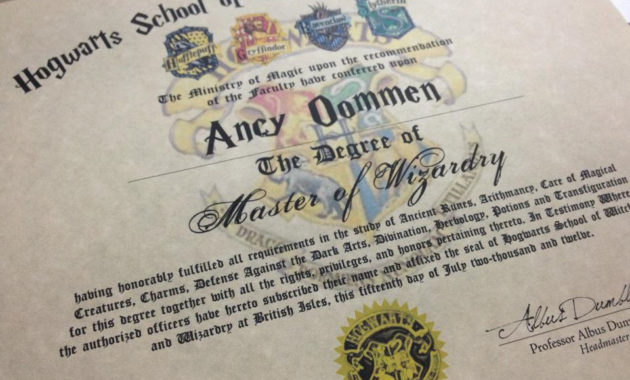 Hogwarts School of
Hufflepuff
Gryffindor
Ravenclaw
Slytherin
The Ministry of Magic upon the recommendation
of the Faculty have conferred upon
Ancy Oommen
The Degree of
Master of Wizardry
having honorably fulfilled all requirements in the study of Ancient Runes, Arithmancy, Care of Magical
Creatures, Charms, Defense Against the Dark Arts, Divination, Herbology, Potions and Transfiguration
for this degree together with all the rights, privileges, and honors pertaining thereto. In Testimony Where
the authorized officers have hereto subscribed their name and affixed the seal of Hogwarts School of Witch
and Wizardry at British Isles, this fifteenth day of July two-thousand and twelve.
HOGWARTS
Albus Dumbl
Professor Albus Dum
Headmaster